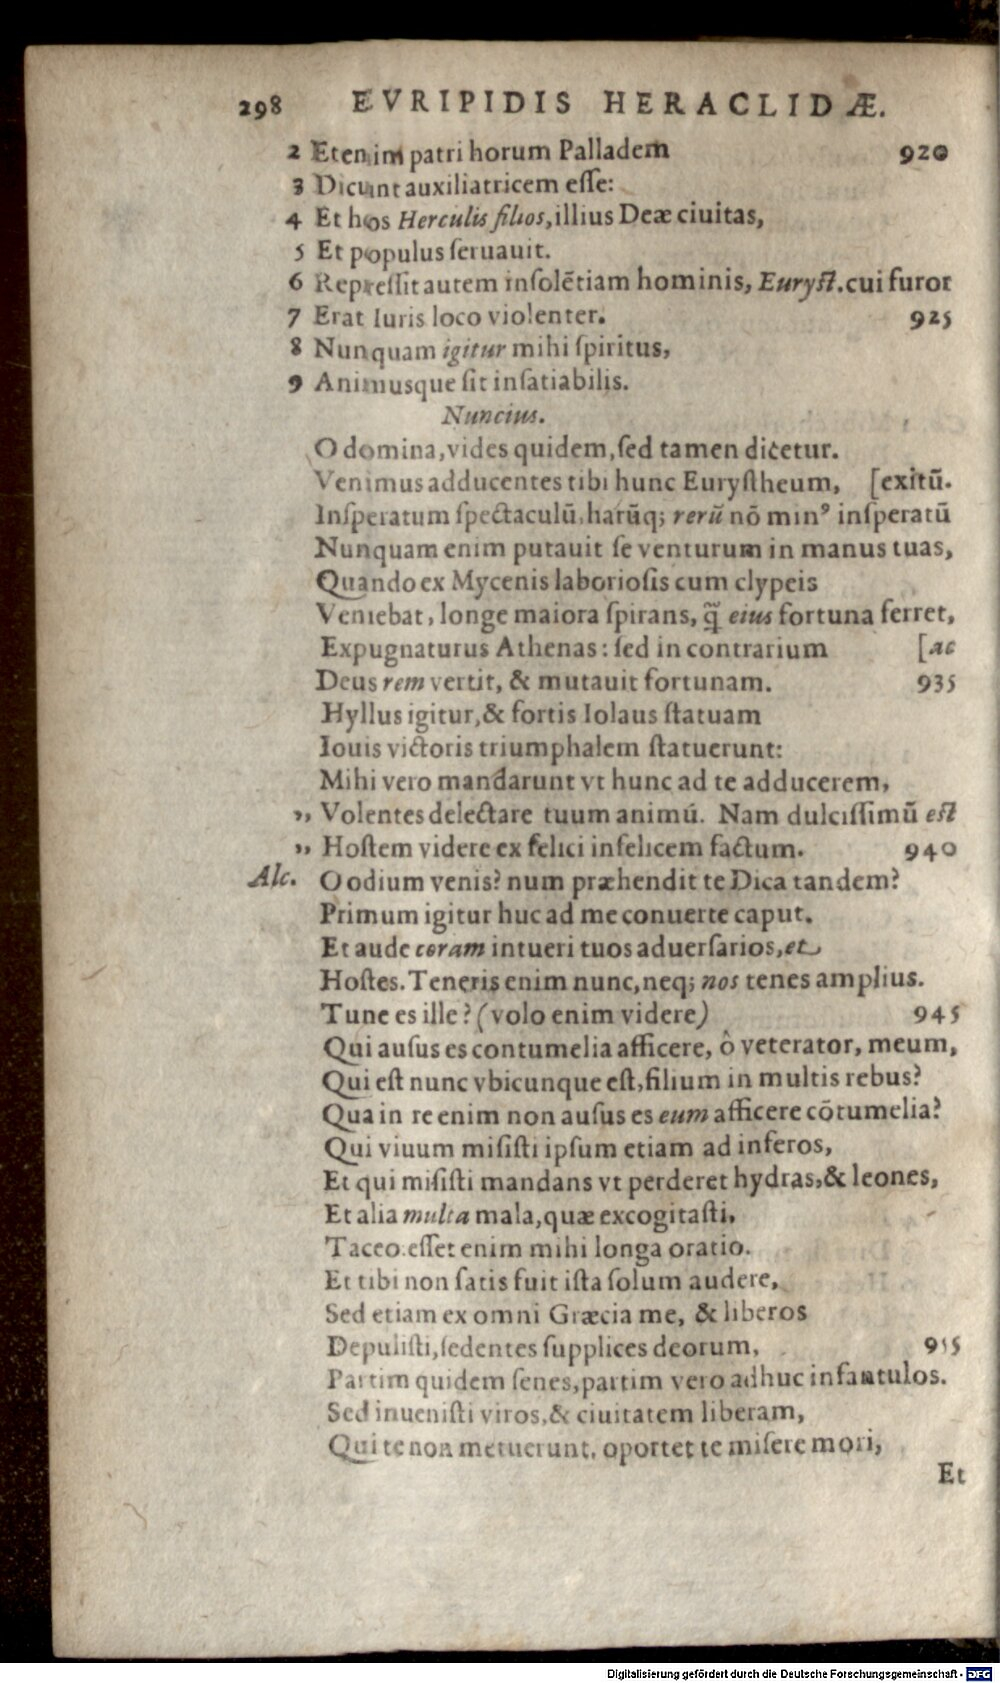 298 EVRIPIDIS HERACLIDÆ.
2 Etenim patri horum Palladem 920
3 Dicunt auxiliatricem eſſe:
4 Et hos Herculis filios, illius Deæ ciuitas,
5 Et populus ſeruauit.
6 Repreſſit autem inſolẽtiam hominis, Euryſt. cui furor
7 Erat Iuris loco violenter. 925
8 Nunquam igitur mihi ſpiritus,
9 Animusque ſit inſatiabilis.
Nuncius.
O domina, vides quidem, ſed tamen dicetur.
Venimus adducentes tibi hunc Euryſtheum, [exitũ.
Inſperatum ſpectaculũ, harũq; rerũ nõ minꝰ inſperatũ
Nunquam enim putauit ſe venturum in manus tuas,
Quando ex Mycenis laborioſis cum clypeis
Veniebat, longe maiora ſpirans, q̃ eius fortuna ferret,
Expugnaturus Athenas: ſed in contrarium [ac
Deus rem vertit, & mutauit fortunam. 935
Hyllus igitur, & fortis Iolaus ſtatuam
Iouis victoris triumphalem ſtatuerunt:
Mihi vero mandarunt vt hunc ad te adducerem,
„ Volentes delectare tuum animú. Nam dulciſſimũ eſt
„ Hoſtem videre ex felici infelicem factum. 940
Alc. O odium venis? num præhendit te Dica tandem?
Primum igitur huc ad me conuerte caput.
Et aude coram intueri tuos aduerſarios, et
Hoſtes. Teneris enim nunc, neq; nos tenes amplius.
Tune es ille? (volo enim videre) 945
Qui auſus es contumelia afficere, ô veterator, meum,
Qui eſt nunc vbicunque eſt, filium in multis rebus?
Qua in re enim non auſus es eum afficere cõtumelia?
Qui viuum miſiſti ipſum etiam ad inferos,
Et qui miſiſti mandans vt perderet hydras, & leones,
Et alia multa mala, quæ excogitaſti.
Taceo. eſſet enim mihi longa oratio.
Et tibi non ſatis fuit iſta ſolum audere,
Sed etiam ex omni Græcia me, & liberos
Depuliſti, ſedentes ſupplices deorum, 955
Partim quidem ſenes, partim vero adhuc infantulos.
Sed inueniſti viros, & ciuitatem liberam,
Qui te non metuerunt. oportet te miſere mori,
Et
Digitalisierung gefördert durch die Deutsche Forschungsgemeinschaft - DFG